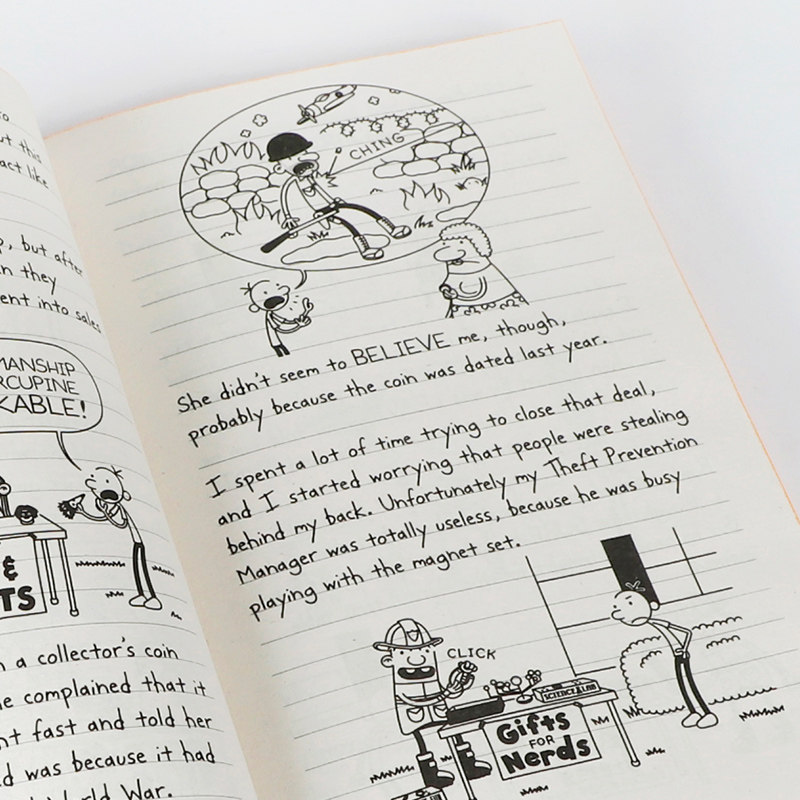 ut this
act like
p, but after
n they
ent into sales
MANSHIP
RCUPINE
KABLE!
&
TS
n a collector's coin
e complained that it
nt fast and told her
d was because it had
World War.
CHING
She didn't seem to BELIEVE me, though,
probably because the coin was dated last year.
I spent a lot of time trying to close that deal,
and I started worrying that people were stealing
behind my back. Unfortunately my Theft Prevention
Manager was totally useless, because he was busy
playing with the magnet set.
CLICK
SCIENCE LAB
Gifts
FOR
Nerds